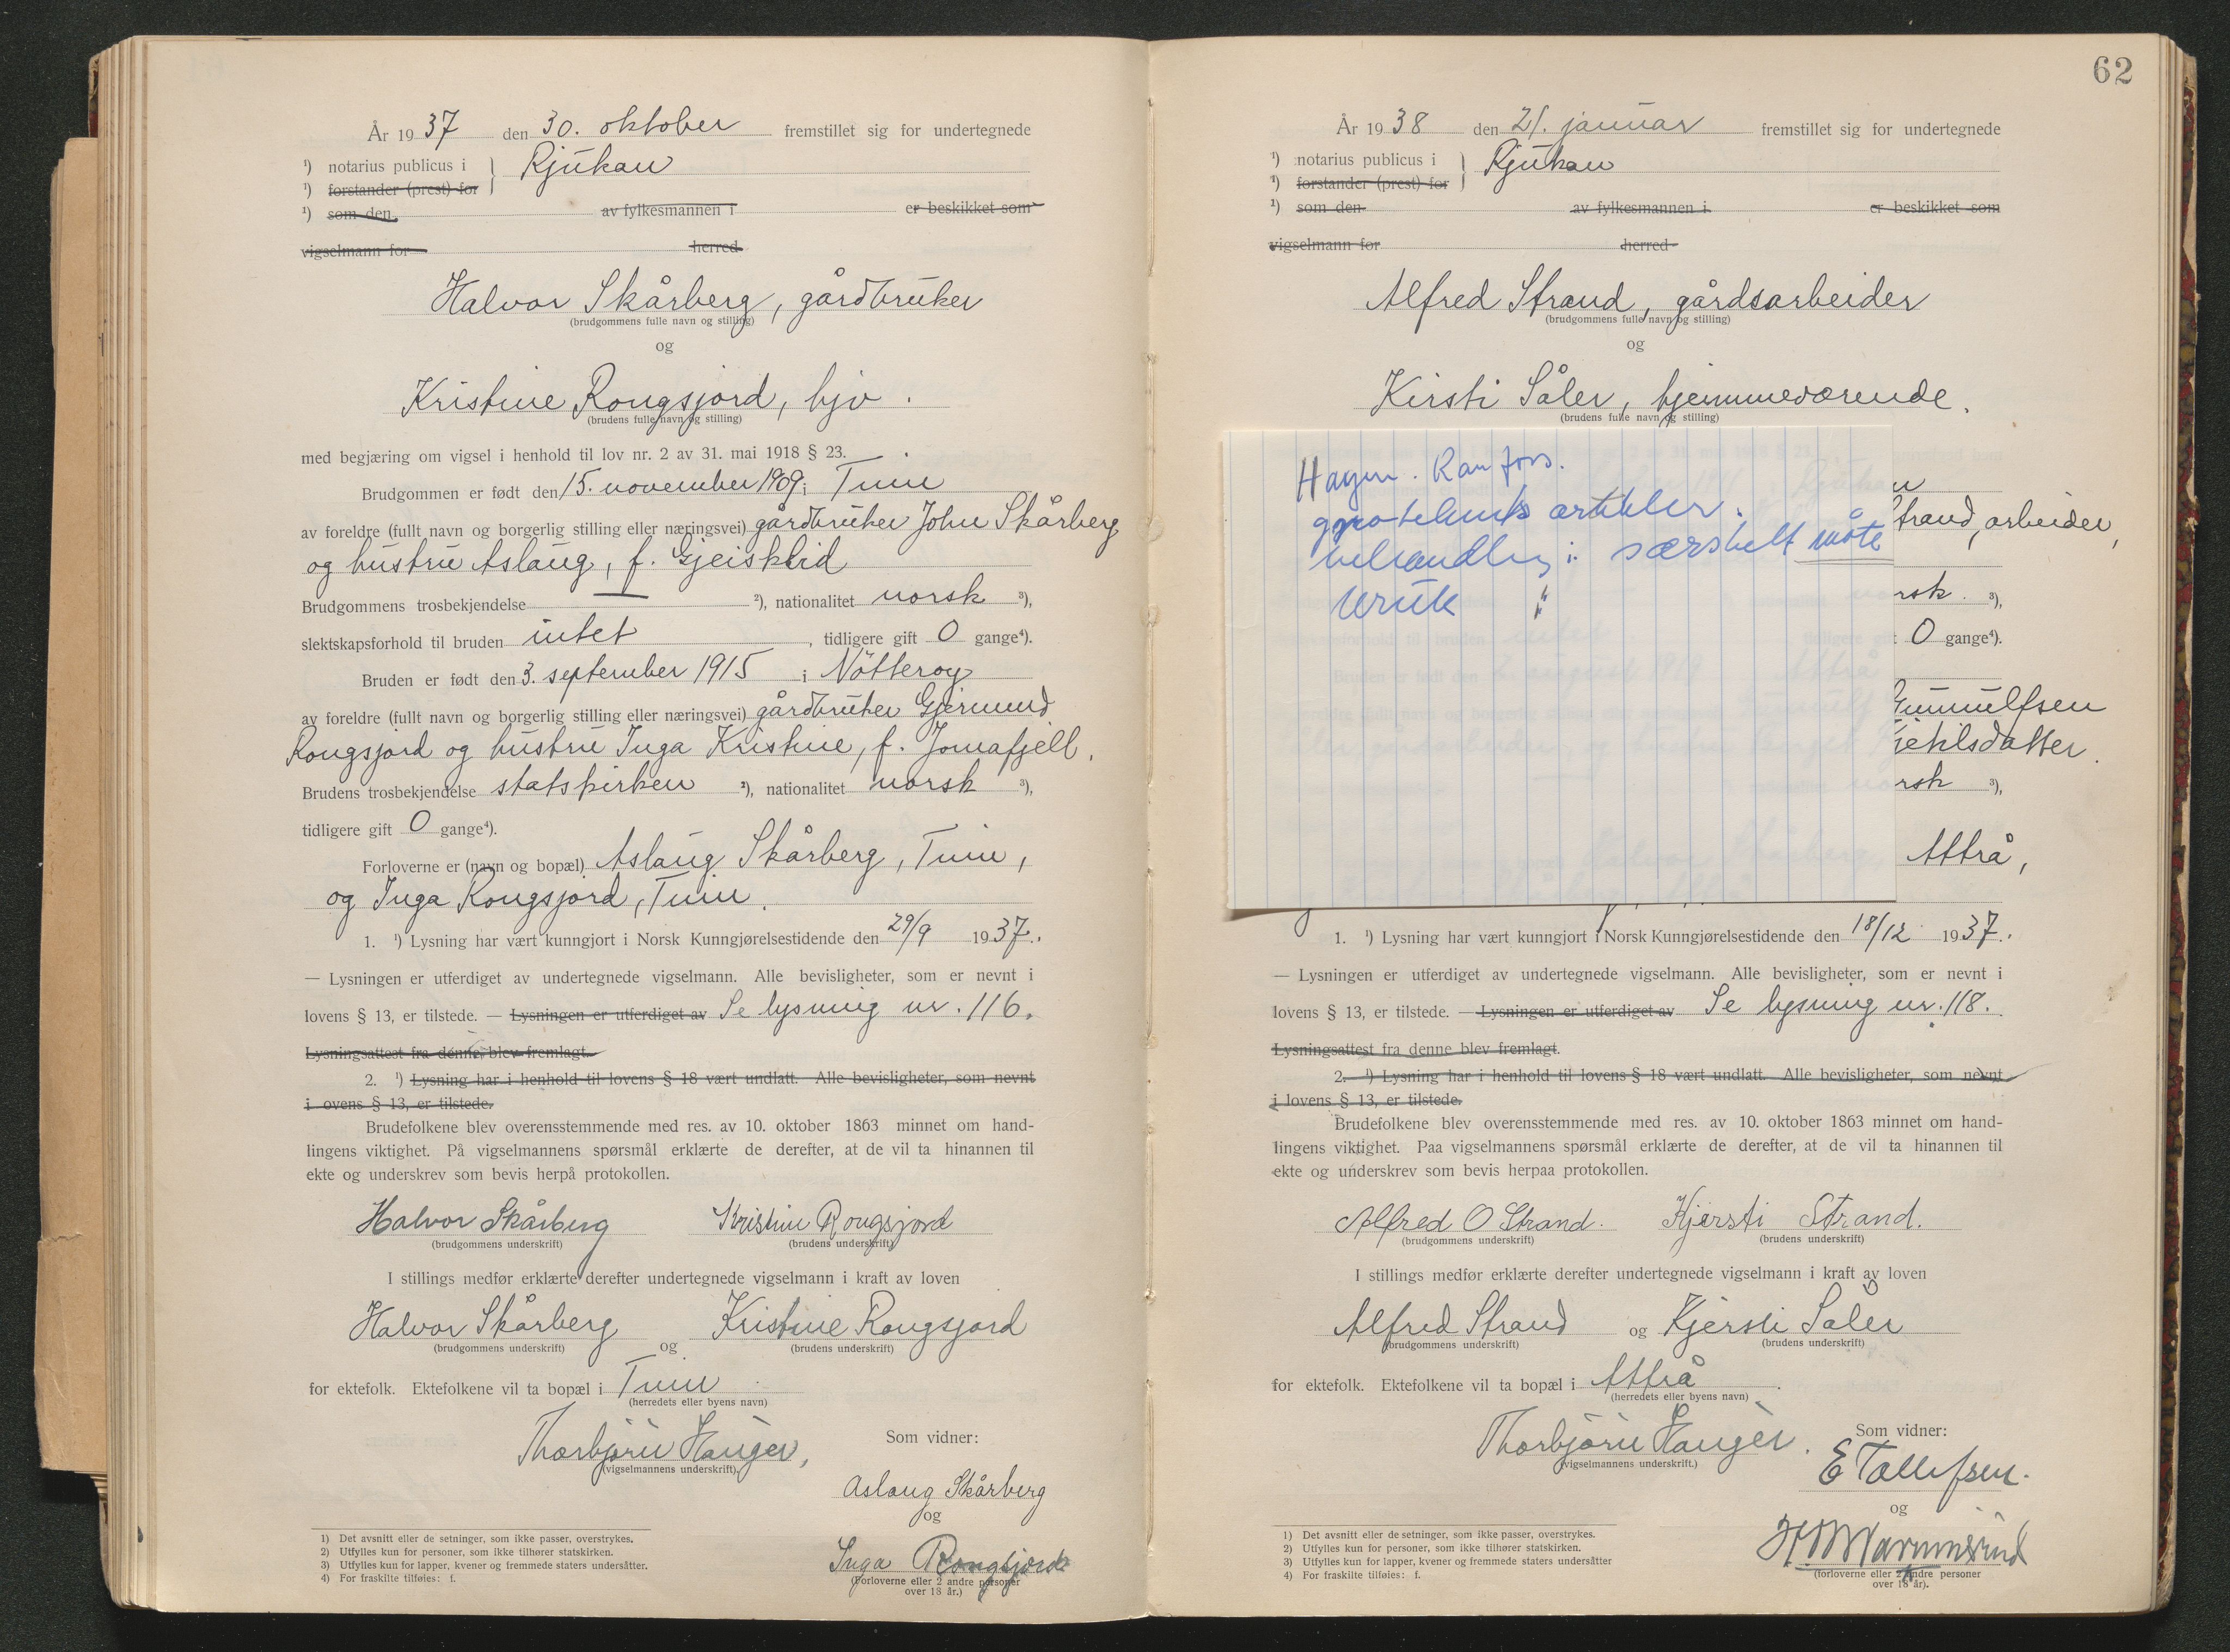 År 1937 den 30. oktober fremstillet sig for undertegnede
¹) notarius publicus i } Rjukan
¹) forstander (prest) for
¹) som den av fylkesmannen i er beskikket som
vigselmann for herred
Halvor Skårberg, gårdbruker
(brudgommens fulle navn og stilling)
og
Kristine Rongsjord, hjv.
(brudens fulle navn og stilling)
med begjæring om vigsel i henhold til lov nr. 2 av 31. mai 1918 § 23.
Brudgommen er født den 15. november 1909 i Tinn
av foreldre (fullt navn og borgerlig stilling eller næringsvei) gårdbruker John Skårberg
og hustru Aslaug, f. Gjeisklid
Brudgommens trosbekjendelse — ²), nationalitet norsk ³),
slektskapsforhold til bruden intet, tidligere gift 0 gange⁴).
Bruden er født den 3. september 1915 i Nötteroy
av foreldre (fullt navn og borgerlig stilling eller næringsvei) gårdbruker Gjermund
Rongsjord og hustru Inga Kristine, f. Jomafjell.
Brudens trosbekjendelse statskirken ²), nationalitet norsk ³),
tidligere gift 0 gange⁴).
Forloverne er (navn og bopæl) Aslaug Skårberg, Tinn,
og Inga Rongsjord, Tinn.
1. ¹) Lysning har vært kunngjort i Norsk Kunngjørelsestidende den 29/9 1937.
— Lysningen er utferdiget av undertegnede vigselmann. Alle bevisligheter, som er nevnt i
lovens § 13, er tilstede. — Lysningen er utferdiget av Se lysning nr. 116.
Lysningsattest fra denne blev fremlagt.
2. ¹) Lysning har i henhold til lovens § 18 vært undlatt. Alle bevisligheter, som nevnt
i ovens § 13, er tilstede.
Brudefolkene blev overensstemmende med res. av 10. oktober 1863 minnet om hand-
lingens viktighet. På vigselmannens spørsmål erklærte de derefter, at de vil ta hinannen til
ekte og underskrev som bevis herpå protokollen.
Halvor Skårberg Kristine Rongsjord
(brudgommens underskrift) (brudens underskrift)
I stillings medfør erklærte derefter undertegnede vigselmann i kraft av loven
Halvor Skårberg og Kristine Rongsjord
(brudgommens underskrift) (brudens underskrift)
for ektefolk. Ektefolkene vil ta bopæl i Tinn
(herredets eller byens navn)
Thorbjörn Hauger,
(vigselmannens underskrift)
Som vidner:
Aslaug Skårberg
og
Inga Rongsjord
(Forloverne eller 2 andre personer
over 18 år.)
1) Det avsnitt eller de setninger, som ikke passer, overstrykes.
2) Utfylles kun for personer, som ikke tilhører statskirken.
3) Utfylles kun for lapper, kvener og fremmede staters undersåtter.
4) For fraskilte tilføies: f.
62
År 1938 den 21. januar fremstillet sig for undertegnede
¹) notarius publicus i } Rjukan
¹) forstander (prest) for
¹) som den av fylkesmannen i er beskikket som
vigselmann for herred
Alfred Strand, gårdsarbeider
(brudgommens fulle navn og stilling)
og
Kirsti Såler, hjemmeværende.
(brudens fulle navn og stilling)
Hagen. Ranfors.
artikler.
behandling i særskelt møte
trand, arbeider,
rsk. ³),
0 gange⁴).
Gunnulfsen
jetilsdatter.
rsk ³),
Attrå,
1. ¹) Lysning har vært kunngjort i Norsk Kunngjørelsestidende den 18/12 1937.
— Lysningen er utferdiget av undertegnede vigselmann. Alle bevisligheter, som er nevnt i
lovens § 13, er tilstede. — Lysningen er utferdiget av Se lysning nr. 118.
Lysningsattest fra denne blev fremlagt.
2. ¹) Lysning har i henhold til lovens § 18 vært undlatt. Alle bevisligheter, som nevnt
i lovens § 13, er tilstede.
Brudefolkene blev overensstemmende med res. av 10. oktober 1863 minnet om hand-
lingens viktighet. Paa vigselmannens spørsmål erklærte de derefter, at de vil ta hinannen til
ekte og underskrev som bevis herpaa protokollen.
Alfred O Strand. Kjersti Strand.
(brudgommens underskrift) (brudens underskrift)
I stillings medfør erklærte derefter undertegnede vigselmann i kraft av loven
Alfred Strand og Kjersti Såler
(brudgommens underskrift) (brudens underskrift)
for ektefolk. Ektefolkene vil ta bopæl i Attrå.
(herredets eller byens navn)
Thorbjörn Hauger.
(vigselmannens underskrift.)
Som vidner:
E Tollefsen.
og
(forloverne eller 2 andre personer
over 18 år).
1) Det avsnitt eller de setninger, som ikke passer, overstrykes.
2) Utfylles kun for personer, som ikke tilhører statskirken.
3) Utfylles kun for lapper, kvener og fremmede staters undersåtter
4) For fraskilte tilføies: f.